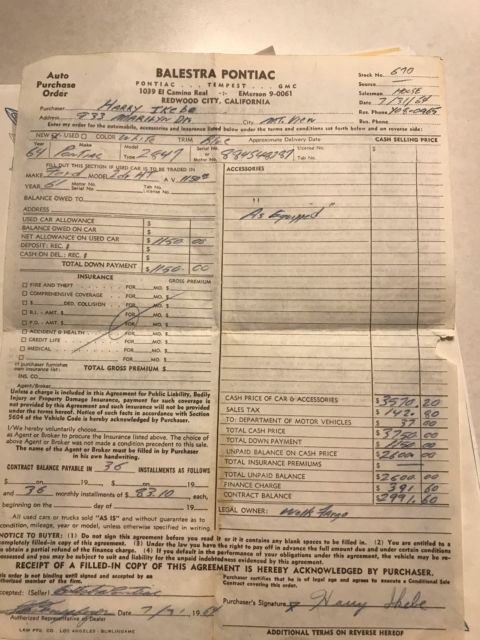 Auto
Purchase
Order
BALESTRA PONTIAC
PONTIAC ... TEMPEST ... GMC
1039 El Camina Real -:- EMerson 9-0061
REDWOOD CITY, CALIFORNIA
Stock No. 670
Source
Salesman HOUSE
Date 7/31/64
Res. Phone 408-0965
Bus. Phone
Purchaser HARRY IKEBE
Address 733 MARILYN DR. City MT. VIEW
Enter my order for the automobile, accessories and insurance listed below under the terms and conditions set forth below and on reverse side:
NEW USED COLOR WHITE TRIM BLUE Approximate Delivery Date CASH SELLING PRICE
Year 64 Make Pontiac Model Type 2847 Serial No. or Motor No. License No. Tab No.
FILL OUT THIS SECTION IF USED CAR IS TO BE TRADED IN
MAKE Ford MODEL A.V. 1150
YEAR 61 Motor No. Serial No. Tab No. License No.
BALANCE OWED TO
ADDRESS
ACCESSORIES
"As Equipped"
USED CAR ALLOWANCE $
BALANCE OWED ON CAR $
NET ALLOWANCE ON USED CAR $ 1150 00
DEPOSIT: REC. # $
CASH ON DEL.: REC. # $
TOTAL DOWN PAYMENT $ 1150. 00
INSURANCE GROSS PREMIUM
FIRE AND THEFT FOR MO. $
COMPREHENSIVE COVERAGE FOR MO. $
$ DED. COLLISION FOR MO. $
B.I. - AMT. $ FOR MO. $
P.D. - AMT. $ FOR MO. $
ACCIDENT & HEALTH FOR MO. $
CREDIT LIFE FOR MO. $
MEDICAL FOR MO. $
FOR MO. $
If purchaser furnishes
own insurance list: TOTAL GROSS PREMIUM $
INS. CO.
Agent/Broker
Unless a charge is included in this Agreement for Public Liability, Bodily
Injury or Property Damage Insurance, payment for such coverage is
not provided by this Agreement and such insurance will not be provided
under the terms hereof. Notice of such facts in accordance with Section
5604 of the Vehicle Code is hereby acknowledged by Purchaser.
I/We hereby voluntarily choose
as Agent or Broker to procure the Insurance listed above. The choice of
above Agent or Broker was not made a condition precedent to this sale.
The name of the Agent or Broker must be filled in by Purchaser
in his own handwriting.
CONTRACT BALANCE PAYABLE IN 36 INSTALLMENTS AS FOLLOWS
$ on 19 , $ on 19
and 36 monthly installments of $ 83.10 , each,
beginning on the day of 19
All used cars or trucks sold "AS IS" and without guarantee as to
condition, mileage, year or model, unless otherwise specified in writing
CASH PRICE OF CAR & ACCESSORIES $ 3570. 20
SALES TAX $ 142. 80
TO: DEPARTMENT OF MOTOR VEHICLES $ 37 00
TOTAL CASH PRICE $ 3750 00
TOTAL DOWN PAYMENT $ 1150 00
UNPAID BALANCE ON CASH PRICE $ 2600. 00
TOTAL INSURANCE PREMIUMS $
TOTAL UNPAID BALANCE $ 2600. 00
FINANCE CHARGE $ 391. 60
CONTRACT BALANCE $ 2991. 60
LEGAL OWNER: Wells Fargo
NOTICE TO BUYER: (1) Do not sign this agreement before you read it or if it contains any blank spaces to be filled in. (2) You are entitled to a
completely filled-in copy of this agreement. (3) Under the law you have the right to pay off in advance the full amount due and under certain conditions
to obtain a partial refund of the finance charge. (4) If you default in the performance of your obligations under this agreement, the vehicle may be re-
possessed and you may be subject to suit and liability for the unpaid indebtedness evidenced by this agreement.
RECEIPT OF A FILLED-IN COPY OF THIS AGREEMENT IS HEREBY ACKNOWLEDGED BY PURCHASER.
this order is not binding until signed and accepted by an
authorized member of the firm.
Purchaser certifies that he is of legal age and agrees to execute a Conditional Sale
Contract covering this order.
Accepted: (Seller)
Date 7/31, 1964
Authorized Representative of Dealer
Purchaser's Signature X Harry Ikebe
LAW PTG. CO. LOS ANGELES - BURLINGAME
ADDITIONAL TERMS ON REVERSE HEREOF